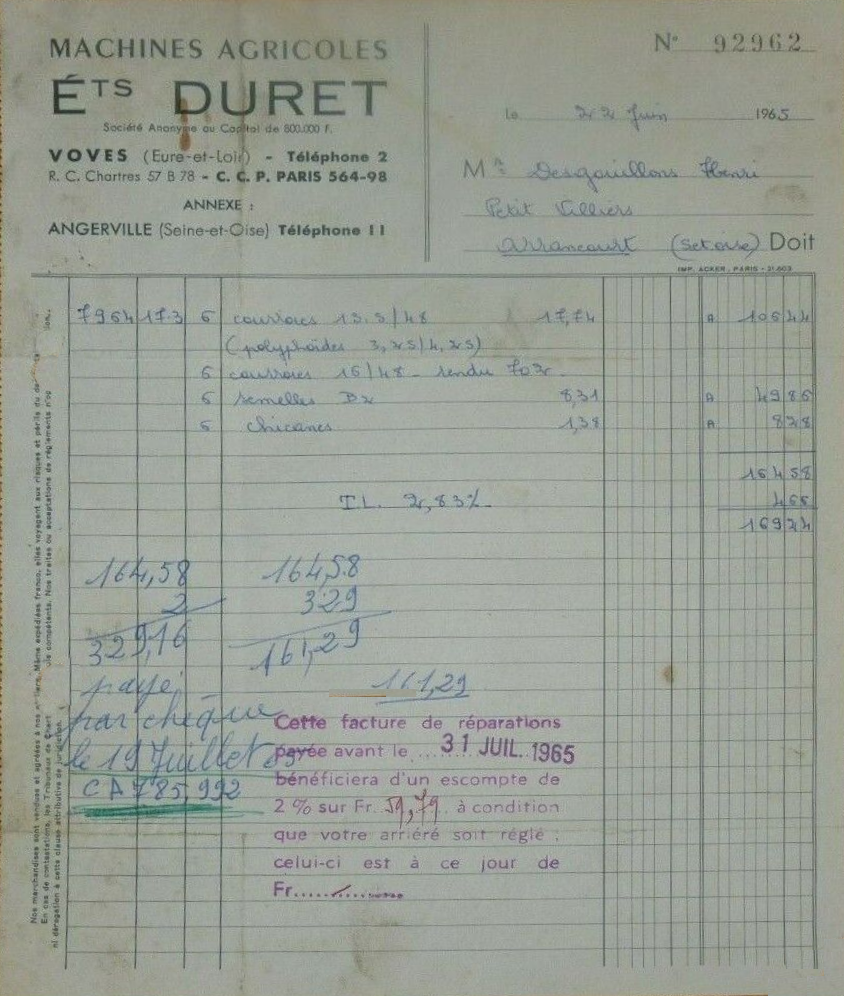 MACHINES AGRICOLES
N° 92962
ÉTS DURET
Société Anonyme au Capital de 800.000 F.
le 22 Juin 1965
VOVES (Eure-et-Loir) - Téléphone 2
R. C. Chartres 57 B 78 - C. C. P. PARIS 564-98
Mr Desgouillons Henri
ANNEXE :
Petit Villiers
ANGERVILLE (Seine-et-Oise) Téléphone 11
Arrancourt (Set oise) Doit
IMP. ACKER, PARIS - 31.603
7964 173 6 courroies 13.5/48 17,74 A 10644
(polyphoïdes 3,25/4,25)
6 courroies 16/48 - rendu 703r.
6 semelles D2 8,31 A 4986
6 chicanes 1,38 A 828
16458
T.L. 2,83% 466
16924
164,58 164,58
2 329
329,16 161,29
payé 161,29
par chèque
le 19 Juillet 65
CA 785,992
Cette facture de réparations
payée avant le 31 JUIL. 1965
bénéficiera d'un escompte de
2 % sur Fr. 59,79 à condition
que votre arriéré soit réglé ;
celui-ci est à ce jour de
Fr.
Nos marchandises sont vendues et agréées à nos ateliers. Même expédiées franco, elles voyagent aux risques et périls du
En cas de contestations, les Tribunaux de compétents. Nos traites ou acceptations de règlements n'op
ni dérogation à cette clause attributive de juridiction.